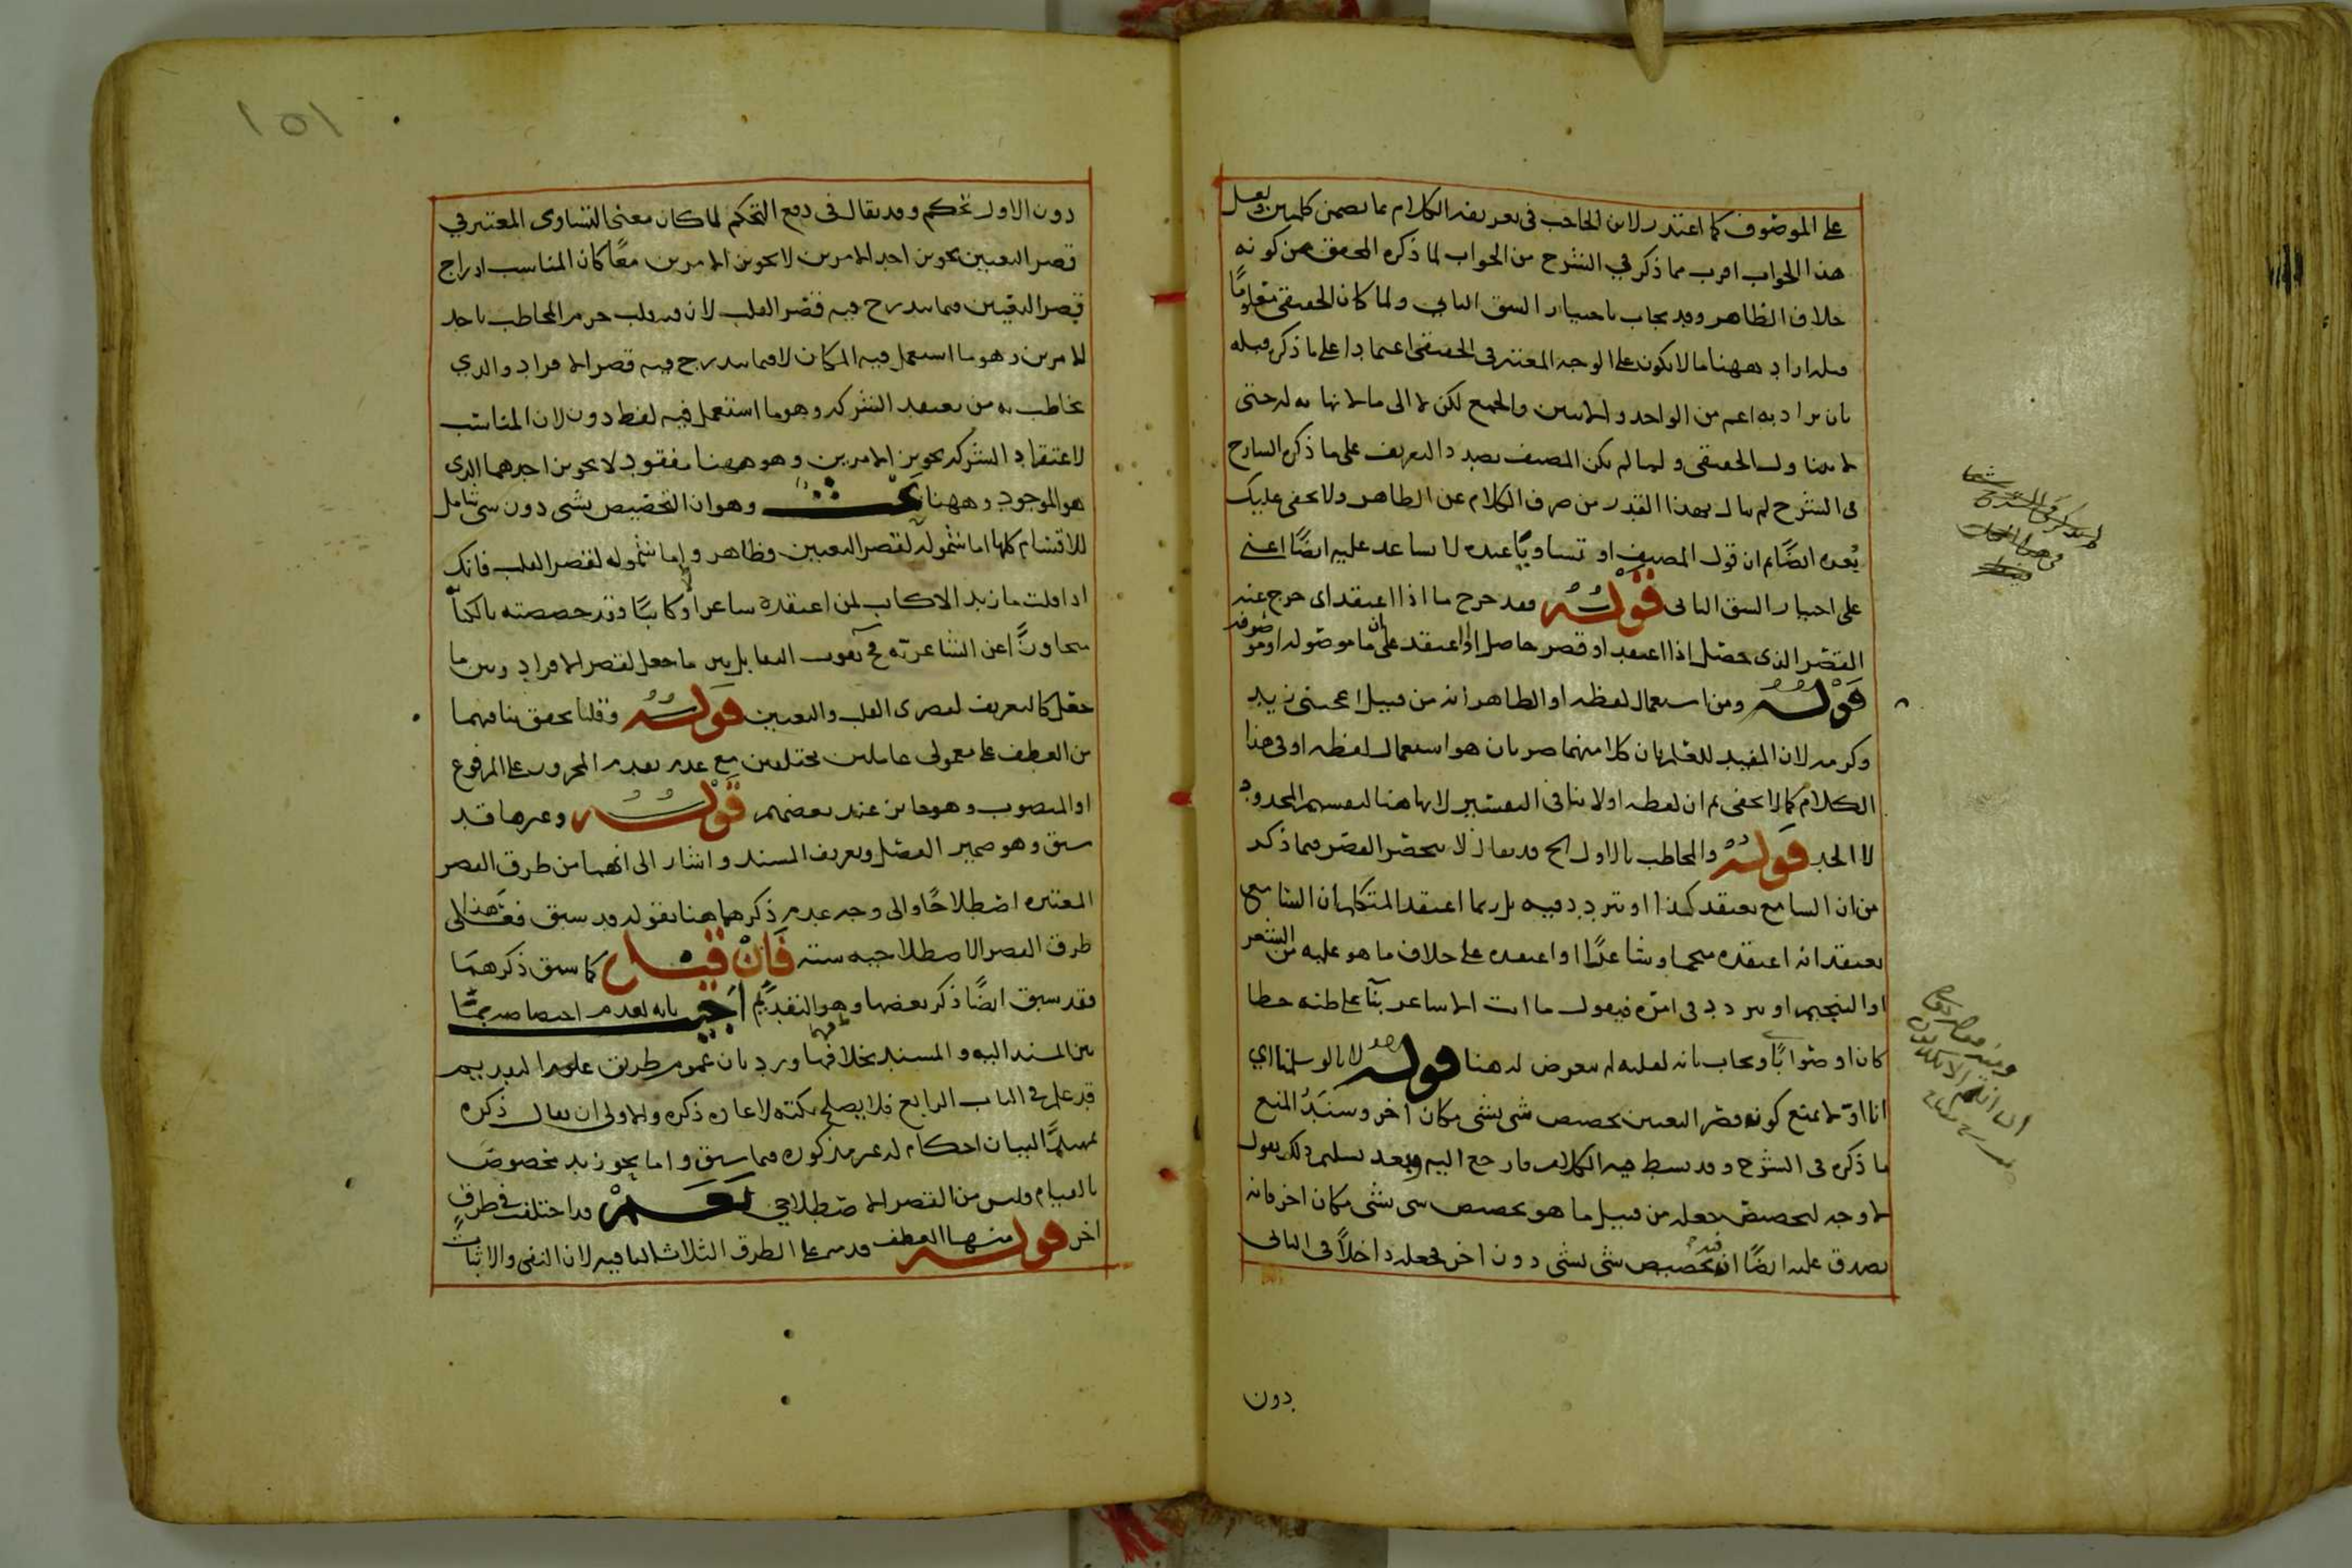 على الموصوف كما اعتذر لابن الحاجب في تعريفه الكلام بما تضمن كلمتين ولعل
هذا الجواب اقرب مما ذكر في الشرح من الجواب لما ذكره المحقق من كونه
خلاف الظاهر وقد يجاب باختيار الشق الثاني ولما كان الحقيقي معلوما
قبله اراد ههنا ما لا يكون على الوجه المعتبر في الحقيقي اعتمادا على ما ذكره قبله
بان يراد به اعم من الواحد والاثنين والجمع لكن لا الى ما لا نهاية له حتى
لا يتناول الحقيقي ولما لم يكن المصنف بصدد التعريف على ما ذكره الشارح
في الشرح لم يبال بهذا القدر من صرف الكلام عن الظاهر ولا يخفى عليك
بُعده ايضًا ثم ان قول المصنف او تساويا عنده لا يساعد عليه ايضًا اعني
على اختيار الشق الثاني قوله فقد خرج ما اذا اعتقد اى خرج عنه
القصر الذى حصل اذا اعتقد او قصر حاصل اذا اعتقد على ان ما موصوله او موصوفه
قوله ومن استعمال لفظه او الظاهر انه من قبيل اعجبني زيد
وكرمه لان المفيد للتغاير بان كلا منهما ضربان هو استعمال لفظه او في هذا
الكلام كما لا يخفى ثم ان لفظه او لا ينافى التفسير لانها هنا لتقسيم المحدود
لا الحد قوله والمخاطب بالاول الخ قد يقال لا ينحصر القصر فيما ذكر
من ان السامع يعتقد كذا او يتردد فيه بل ربما اعتقد المتكلم ان السامع
يعتقد انه اعتقده منجما وشاعرًا او اعتقده على خلاف ما هو عليه من الشعر
او التنجيم او يتردد في امره فيقول ما انت الا شاعر بنآ على ظنه خطا
كان او صوابًا ويجاب بانه لقلته لم يتعرض له هنا قوله لانا لو سلمنا اي
انا اوّلا نمنع كونه قصر التعيين تخصيص شى بشى مكان اخر وسَنَدُ المنع
ما ذكره في الشرح وقد بسط فيه الكلام فارجع اليه وبعد تسليم ذلك نقول
لا وجه لتخصيص جعله من قبيل ما هو تخصيص شى بشى مكان اخر فانه
يصدق عليه ايضًا ان فيه تخصيص شى بشى دون اخر فجعله داخلًا في الثانى
دون
١٥١
دون الاول تحكم وقد يقال في دفع التحكم لما كان معنى التساوى المعتبر في
قصر التعيين تجويز احد الامرين لا تجويز الامرين معًا كان المناسب ادراج
قصر التعيين فيما يندرج فيه قصر القلب لان فيه قلب جزم المخاطب باحد
الامرين وهو ما استعمل فيه المكان لا فيما يندرج فيه قصر الافراد والذي
يخاطب به من يعتقد الشركه وهو ما استعمل فيه لفظ دون لان المناسب
لاعتقاد الشركه تجويز الامرين وهو ههنا مفقود لا تجويز احدهما الذى
هو الموجود وههنا بحث وهو ان التخصيص بشى دون شى شامل
للاقسام كلها اما شموله لقصر التعيين فظاهر واما شموله لقصر القلب فانك
اذا قلت ما زيد الا كاتب لمن اعتقده شاعرا او كاتبًا وقد خصصته بالكتابه
متجاوزًا عن الشاعريه فح يفوت التقابل بين ما جعل لقصر الافراد وبين ما
جعل كالتعريف لقصرى القلب والتعيين قوله وقلنا تحقق تنافيهما
من العطف على معمولى عاملين مختلفين مع عدم تقديم المجرور على المرفوع
او المنصوب وهو جائز عند بعضهم قوله وغيرها قد
سبق وهو ضمير الفصل وتعريف المسند واشار الى انهما من طرق القصر
المعتبره اصطلاحًا والى وجه عدم ذكرهما هنا بقوله قد سبق فعلى هذا
طرق القصر الاصطلاحيه ستة فَاِنْ قيل كما سبق ذكرهما
فقد سبق ايضًا ذكر بعضها وهو التقديم اُجيب بانه لعدم اختصاصه
بين المسند اليه والمسند بخلافهما ورد بان عموم طريق التقديم
قد علم في الباب الرابع فلا يصلح نكته لاعادة ذكره والاولى ان يقال ذكره
تمهيدًا لبيان احكام له غير مذكوره فيما سبق واما نحو زيد مخصوص
بالقيام فليس من القصر الاصطلاحي نعم قد اختلف في طرق
اخر قوله منها العطف قدمه على الطرق الثلاث الباقيه لان النفى والاثبات